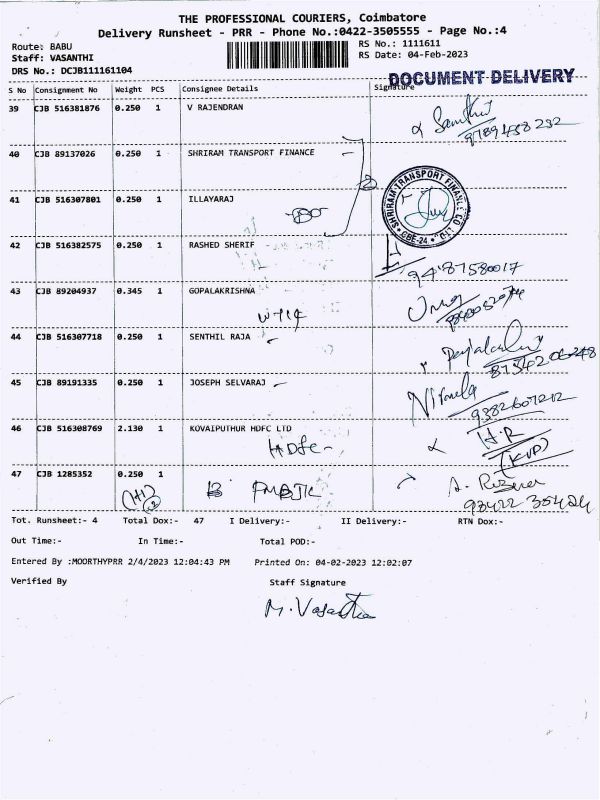 THE PROFESSIONAL COURIERS, Coimbatore
Delivery Runsheet - PRR - Phone No.:0422-3505555 - Page No.:4
Route: BABU
RS No.: 1111611
Staff: VASANTHI
RS Date: 04-Feb-2023
DRS No.: DCJB111161104
DOCUMENT DELIVERY
S No Consignment No Weight PCS Consignee Details Signature
39 CJB 516381876 0.250 1 V RAJENDRAN
40 CJB 89137026 0.250 1 SHRIRAM TRANSPORT FINANCE
SHRIRAM TRANSPORT FINANCE CO LTD * CBE-24 *
41 CJB 516307801 0.250 1 ILLAYARAJ
42 CJB 516382575 0.250 1 RASHED SHERIF
43 CJB 89204937 0.345 1 GOPALAKRISHNA
44 CJB 516307718 0.250 1 SENTHIL RAJA
45 CJB 89191335 0.250 1 JOSEPH SELVARAJ
Nirmala
9382607212
46 CJB 516308769 2.130 1 KOVAIPUTHUR HDFC LTD
HDfc
H.R
(KVP)
47 CJB 1285352 0.250 1
Tot. Runsheet:- 4 Total Dox:- 47 I Delivery:- II Delivery:- RTN Dox:-
Out Time:- In Time:- Total POD:-
Entered By :MOORTHYPRR 2/4/2023 12:04:43 PM Printed On: 04-02-2023 12:02:07
Verified By Staff Signature
M. Vasantha